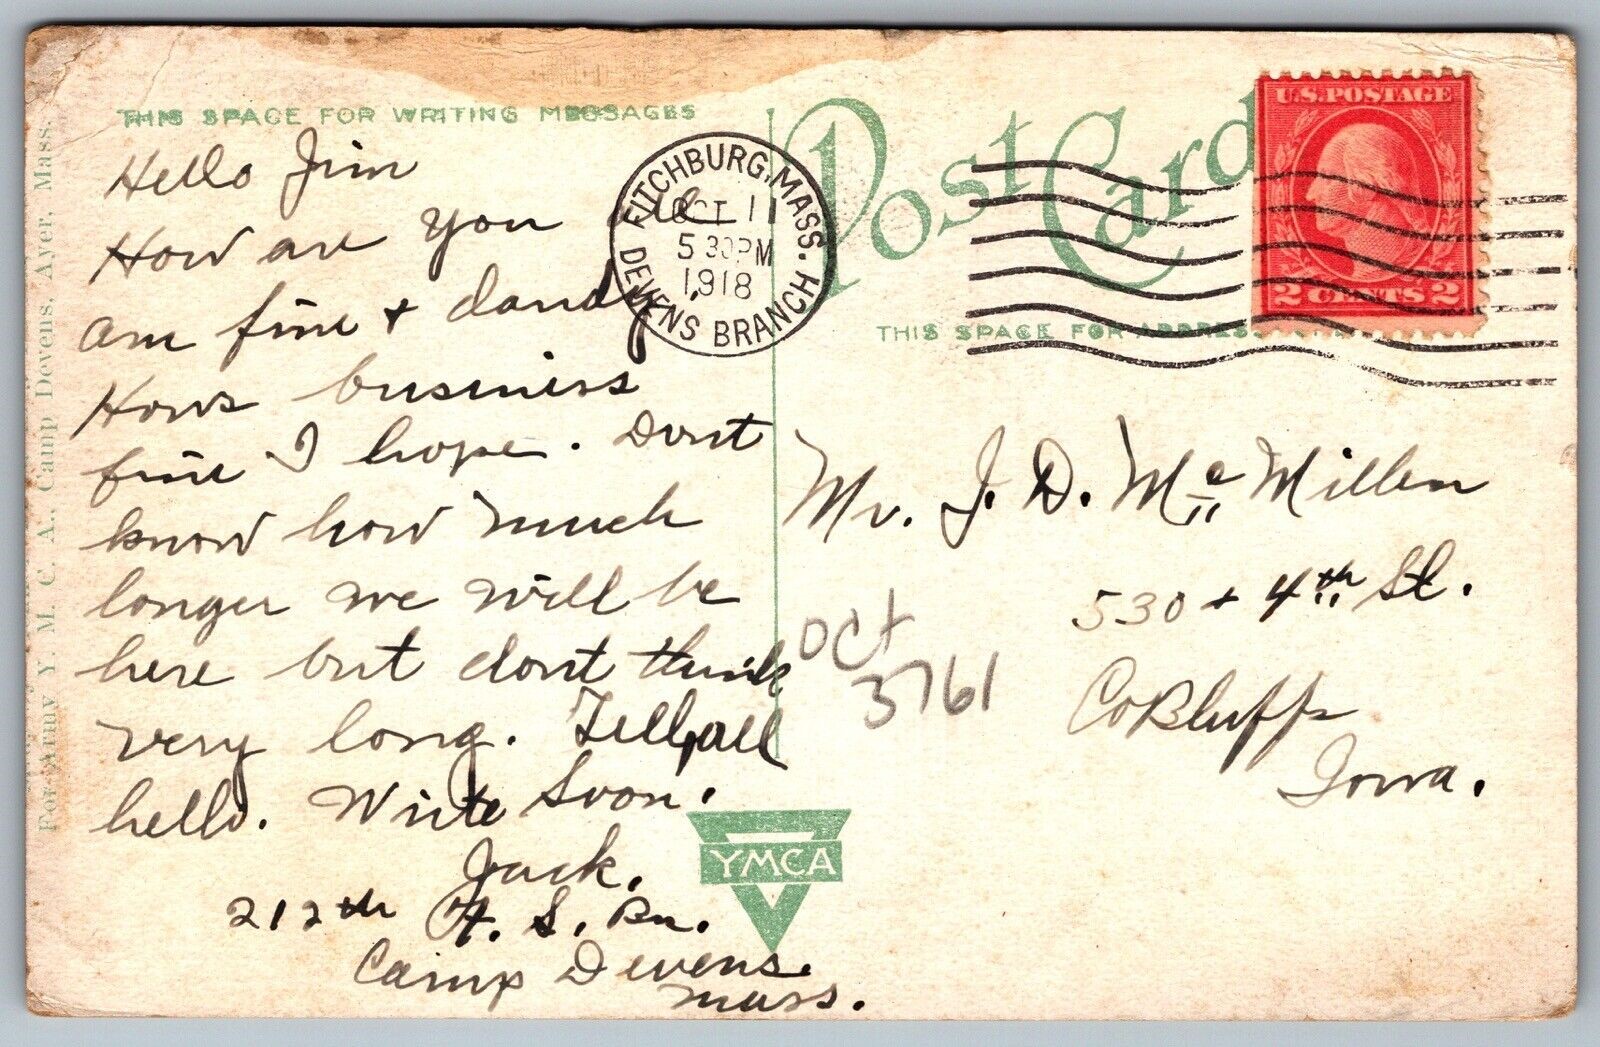 THIS SPACE FOR WRITING MESSAGES
Hello Jim
How are you all
am fine + dandy.
Hows business
fine I hope. Dont
know how much
longer we will be
here but dont think
very long. Tell all
hello. Write Soon.
Jack.
212th F. S. Bn.
Camp Devens.
Mass.
For Army Y. M. C. A., Camp Devens, Ayer, Mass.
FITCHBURG, MASS.
OCT 11
5 30 PM
1918
DEVENS BRANCH
Post Card
THIS SPACE FOR ADDRESS
U.S. POSTAGE
2 CENTS 2
Mr. J. D. Mc Millen
530 + 4th St.
Co Bluffs
Iowa.
OCT
3761
YMCA